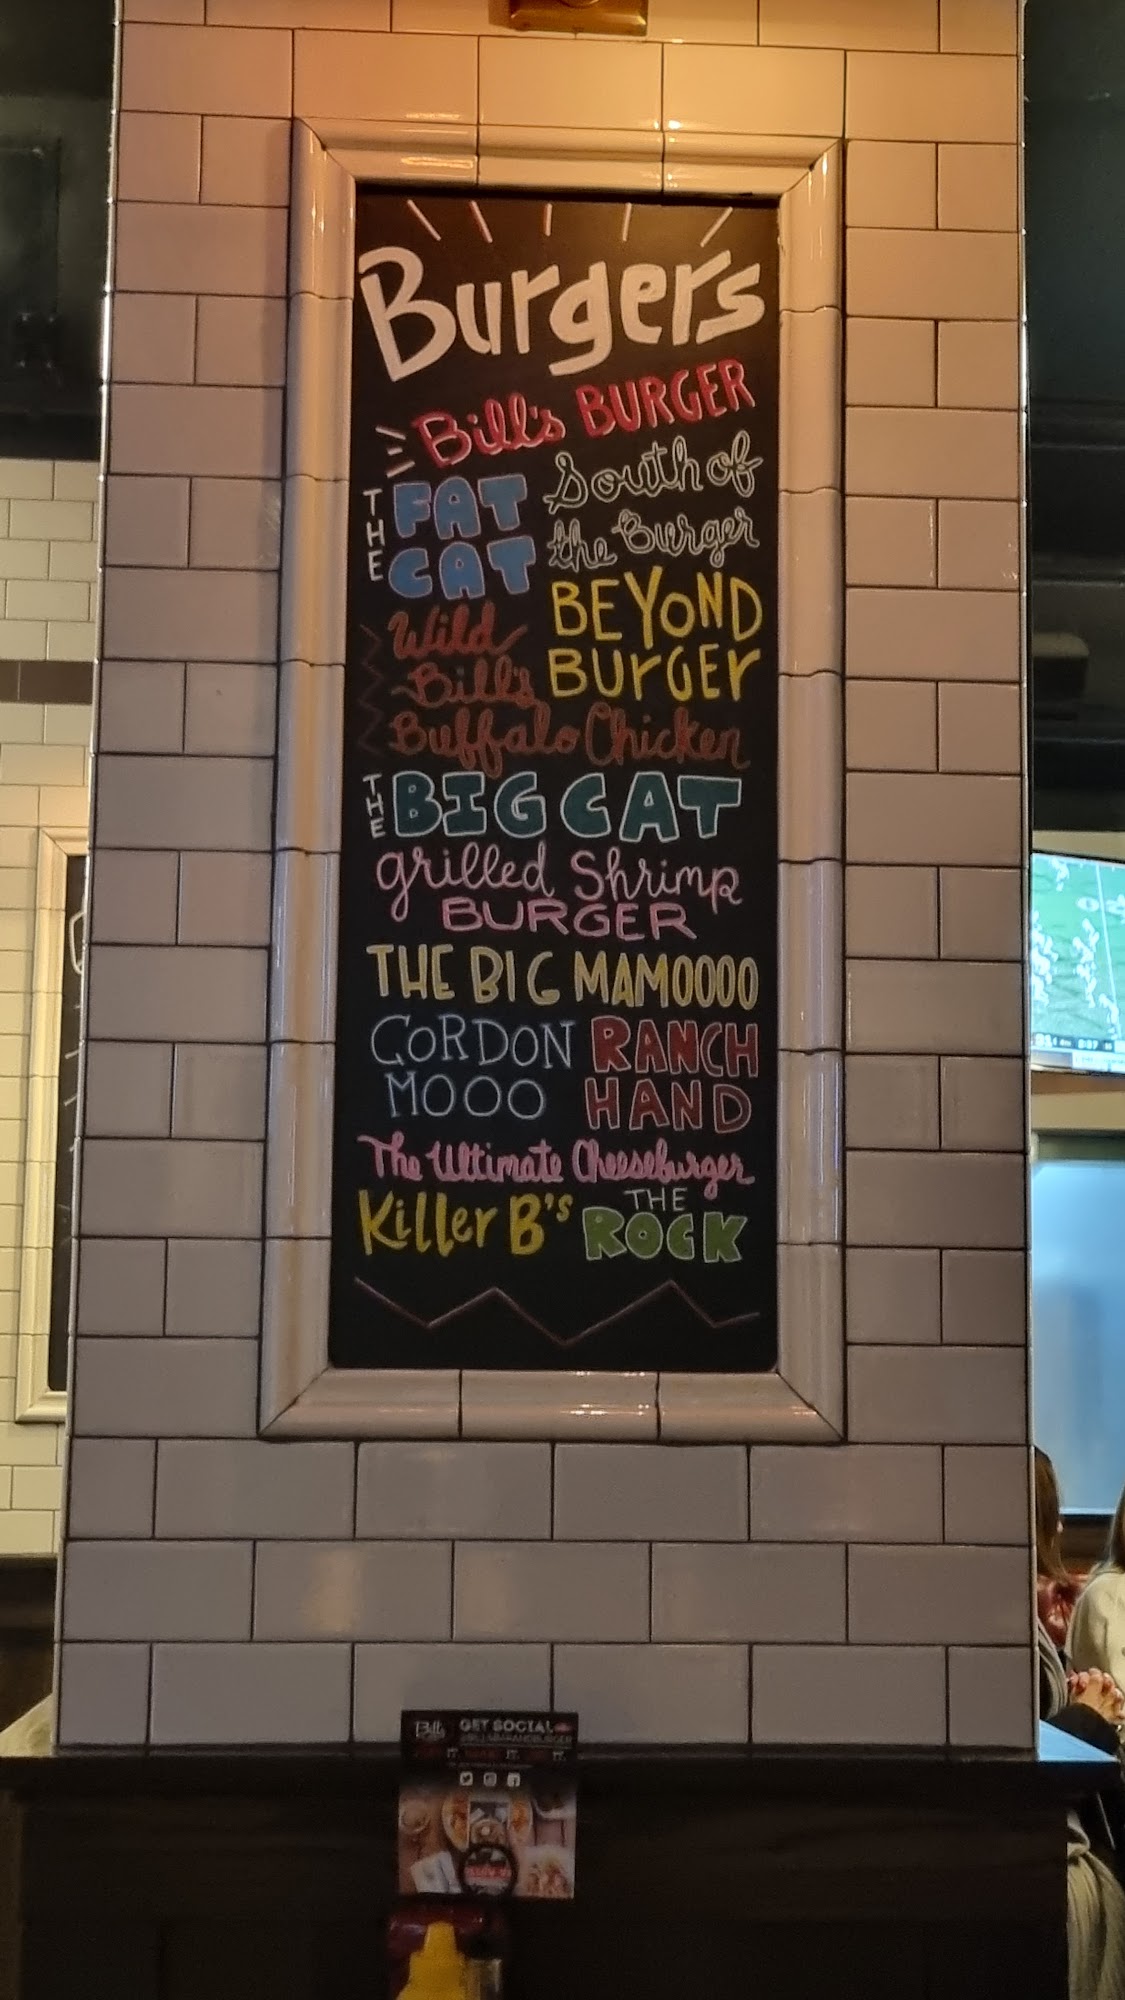 Burgers
Bill's BURGER
THE FAT CAT
South of the Burger
Wild Bill's Buffalo Chicken
BEYOND BURGER
THE BIG CAT
grilled Shrimp
BURGER
THE BIG MAMOOOO
GORDON MOOO
RANCH HAND
The Ultimate Cheeseburger
Killer B's
THE ROCK
Bill's
GET SOCIAL